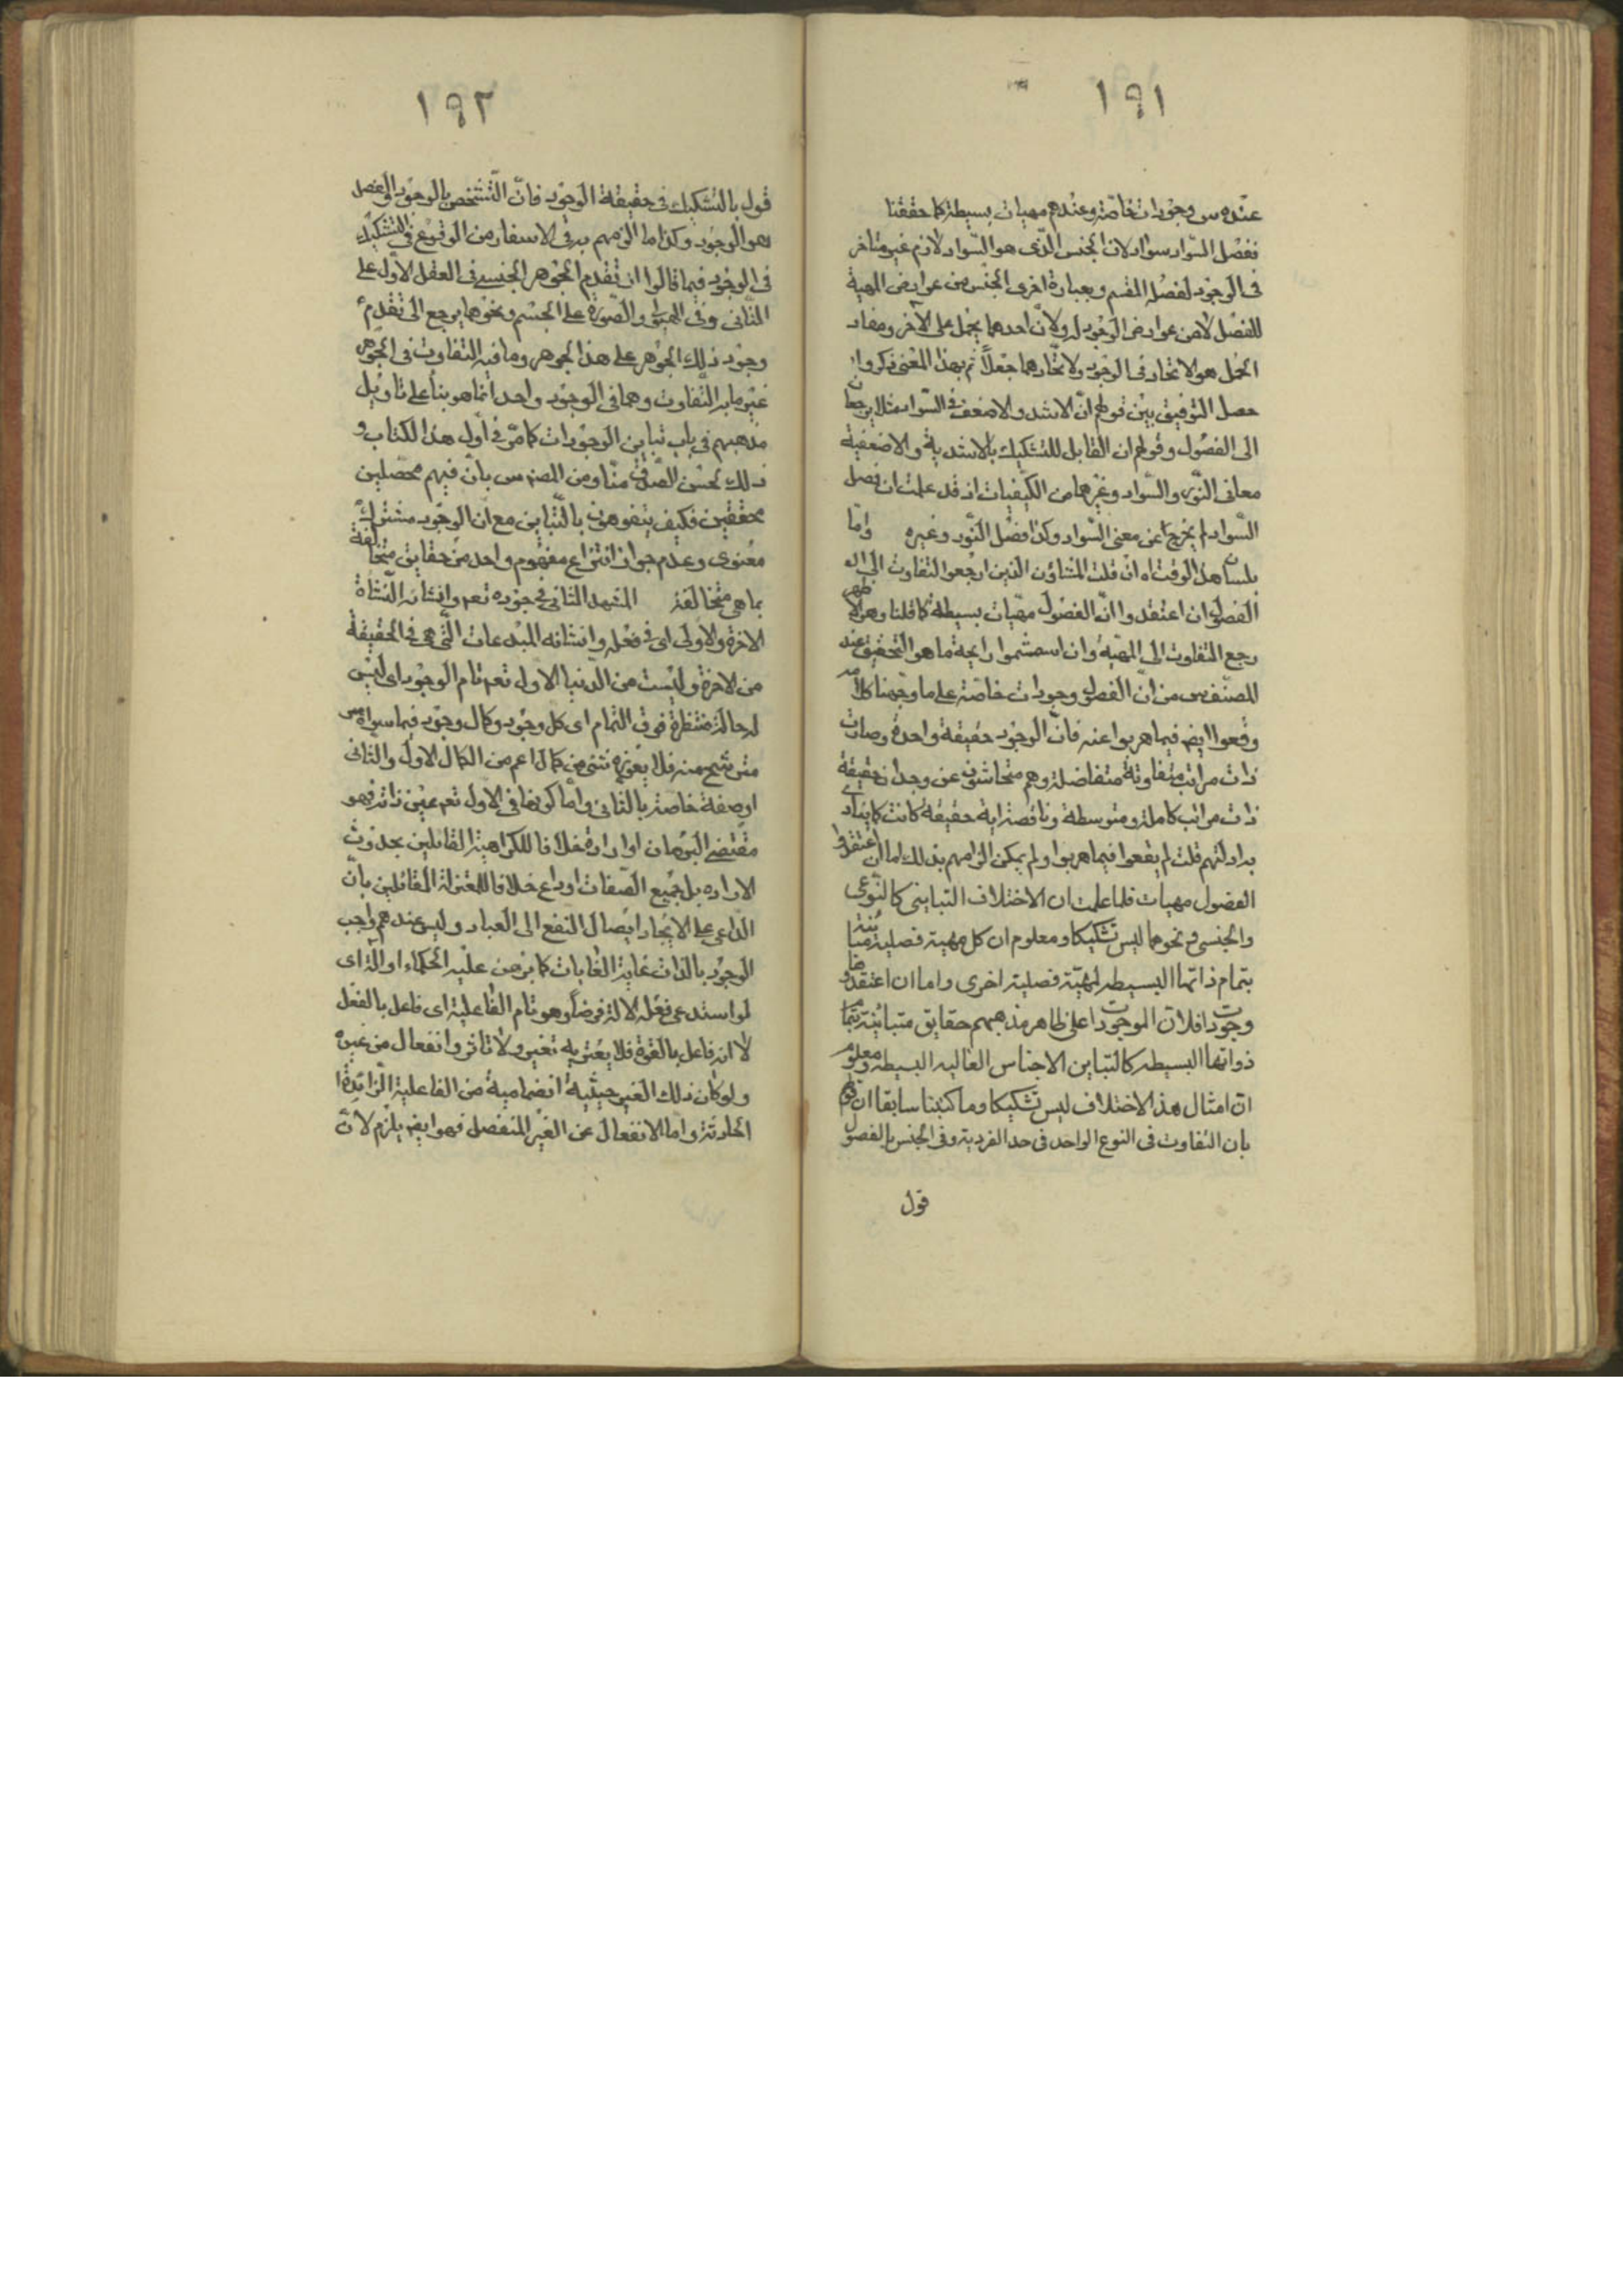 ١٩١
عنده س وجودات خاصة وعندهم مهيات بسيطة كما حققنا
ففصل السواد سواد لان الجنس الذى هو السواد لازم غير متاخر
فى الوجود لفصله المقسم وبعبارة اخرى الجنس من عوارض المهية
للفصل لا من عوارض الوجود له ولان احدهما يحمل على الاخر ومفاد
الحمل هو الاتحاد فى الوجود ولاتحادهما جعلا ثم بهذا المعنى ذكروا
حصل التوفيق بين قولهم ان الاشد والاضعف فى السواد مثلا يرجعان
الى الفصول وقولهم ان القابل للتشكيك بالاشدية والاضعفية
معانى النور والسواد وغيرهما من الكيفيات اذ قد علمت ان فصل
السواد لم يخرج عن معنى السواد وكذا فصل النور وغيره واما
بلسان هذا الوقت اه ان قلت المشاؤن الذين ارجعوا التفاوت الى
الفصول ان اعتقدوا ان الفصول مهيات بسيطة كما قلنا وهو
رجع التفاوت الى المهية وان استشموا رايحة ما هو التحقيق عند
المصنف س من ان الفصول وجودات خاصة على ما وجهنا كلامه
وقعوا ايضا فيما هربوا عنه فان الوجود حقيقة واحدة وصارت
ذات مراتب متفاوتة متفاضلة وهم متحاشون عن وجدان حقيقة
ذات مراتب كاملة ومتوسطة وناقصة اية حقيقة كانت كما ينادى
به ادلتهم قلت لم يقعوا فيما هربوا ولم يمكن الزامهم بذلك اما ان اعتقدوا
الفصول مهيات فلما علمت ان الاختلاف التباينى كالنوعى
والجنسى ونحوهما ليس تشكيكا ومعلوم ان كل مهية فصلية مباينة
بتمام ذاتها البسيطه لمهية فصلية اخرى واما ان اعتقدوها
وجودات فلان الموجودات على ظاهر مذهبهم حقايق متباينة بتمام
ذواتها البسيطه كالتباين الاجناس العاليه البسيطه ومعلوم
ان امثال هذا الاختلاف ليس تشكيكا وما كتبنا سابقا ان قولهم
بان التفاوت فى النوع الواحد فى حد الفردية وفى الجنس بالفصول
قول
١٩٢
قول بالتشكيك فى حقيقة الوجود فان التشخص بالوجود والفصل
هو الوجود وكذا ما الزمهم به فى الاسفار من الوقوع فى التشكيك
فى الوجود فيما قالوا ان تقدم الجوهر الجنسى فى العقل الاول على
الثانى وفى الهيولى والصورة على الجسم ونحوها يرجع الى تقدم
وجود ذلك الجوهر على هذا الجوهر وما فيه التفاوت فى الجوهر
غير ما به التفاوت وهما فى الوجود واحد انما هو بناء على تاويل
مذهبهم فى باب تباين الوجودات كما مر فى اول هذا الكتاب و
ذلك لحسن الظن منا ومن المصنف س بان فيهم محصلين
محققين فكيف يتفوهون بالتباين مع ان الوجود مشترك
معنوى وعدم جواز انتزاع مفهوم واحد من حقايق متخالفة
بما هى متخالفة المشهد الثانى فى وجوده تعم وانشائه النشأة
الاخرة والاولى اى فى فعله وانشائه المبدعات التى هى فى الحقيقة
من الاخرة وليست من الدنيا الاول تعم تام الوجود اى ليس
له حالة منتظرة فوق التمام اى كل وجود وكمال وجود فيما سواه
مترشح منه فلا يعوزه شئ من كمال اعم من الكمال الاول والثانى
او صفة خاصة بالثانى واما كونها فى الاول تعم عين ذاته فهو
مقتضى البرهان او ارادة خلافا للكرامية القائلين بحدوث
الاراده بل جميع الصفات او داع خلافا للمعتزلة القائلين بان
الداعى على الايجاد ايصال النفع الى العباد وليس عندهم واجب
الوجود بالذات غاية الغايات كما برهن عليه الحكماء او الة اى
لو استدعى فعله الالة فرضا وهو تام الفاعلية اى فاعل بالفعل
لا انه فاعل بالقوة فلا يعتريه تغير ولا تاثر وانفعال من غيره
ولو كان ذلك الغير حيثية انضمامية من الفاعلية الزائدة
الحادثة واما الانفعال عن الغير المنفصل فهو ايضا يلزم لان